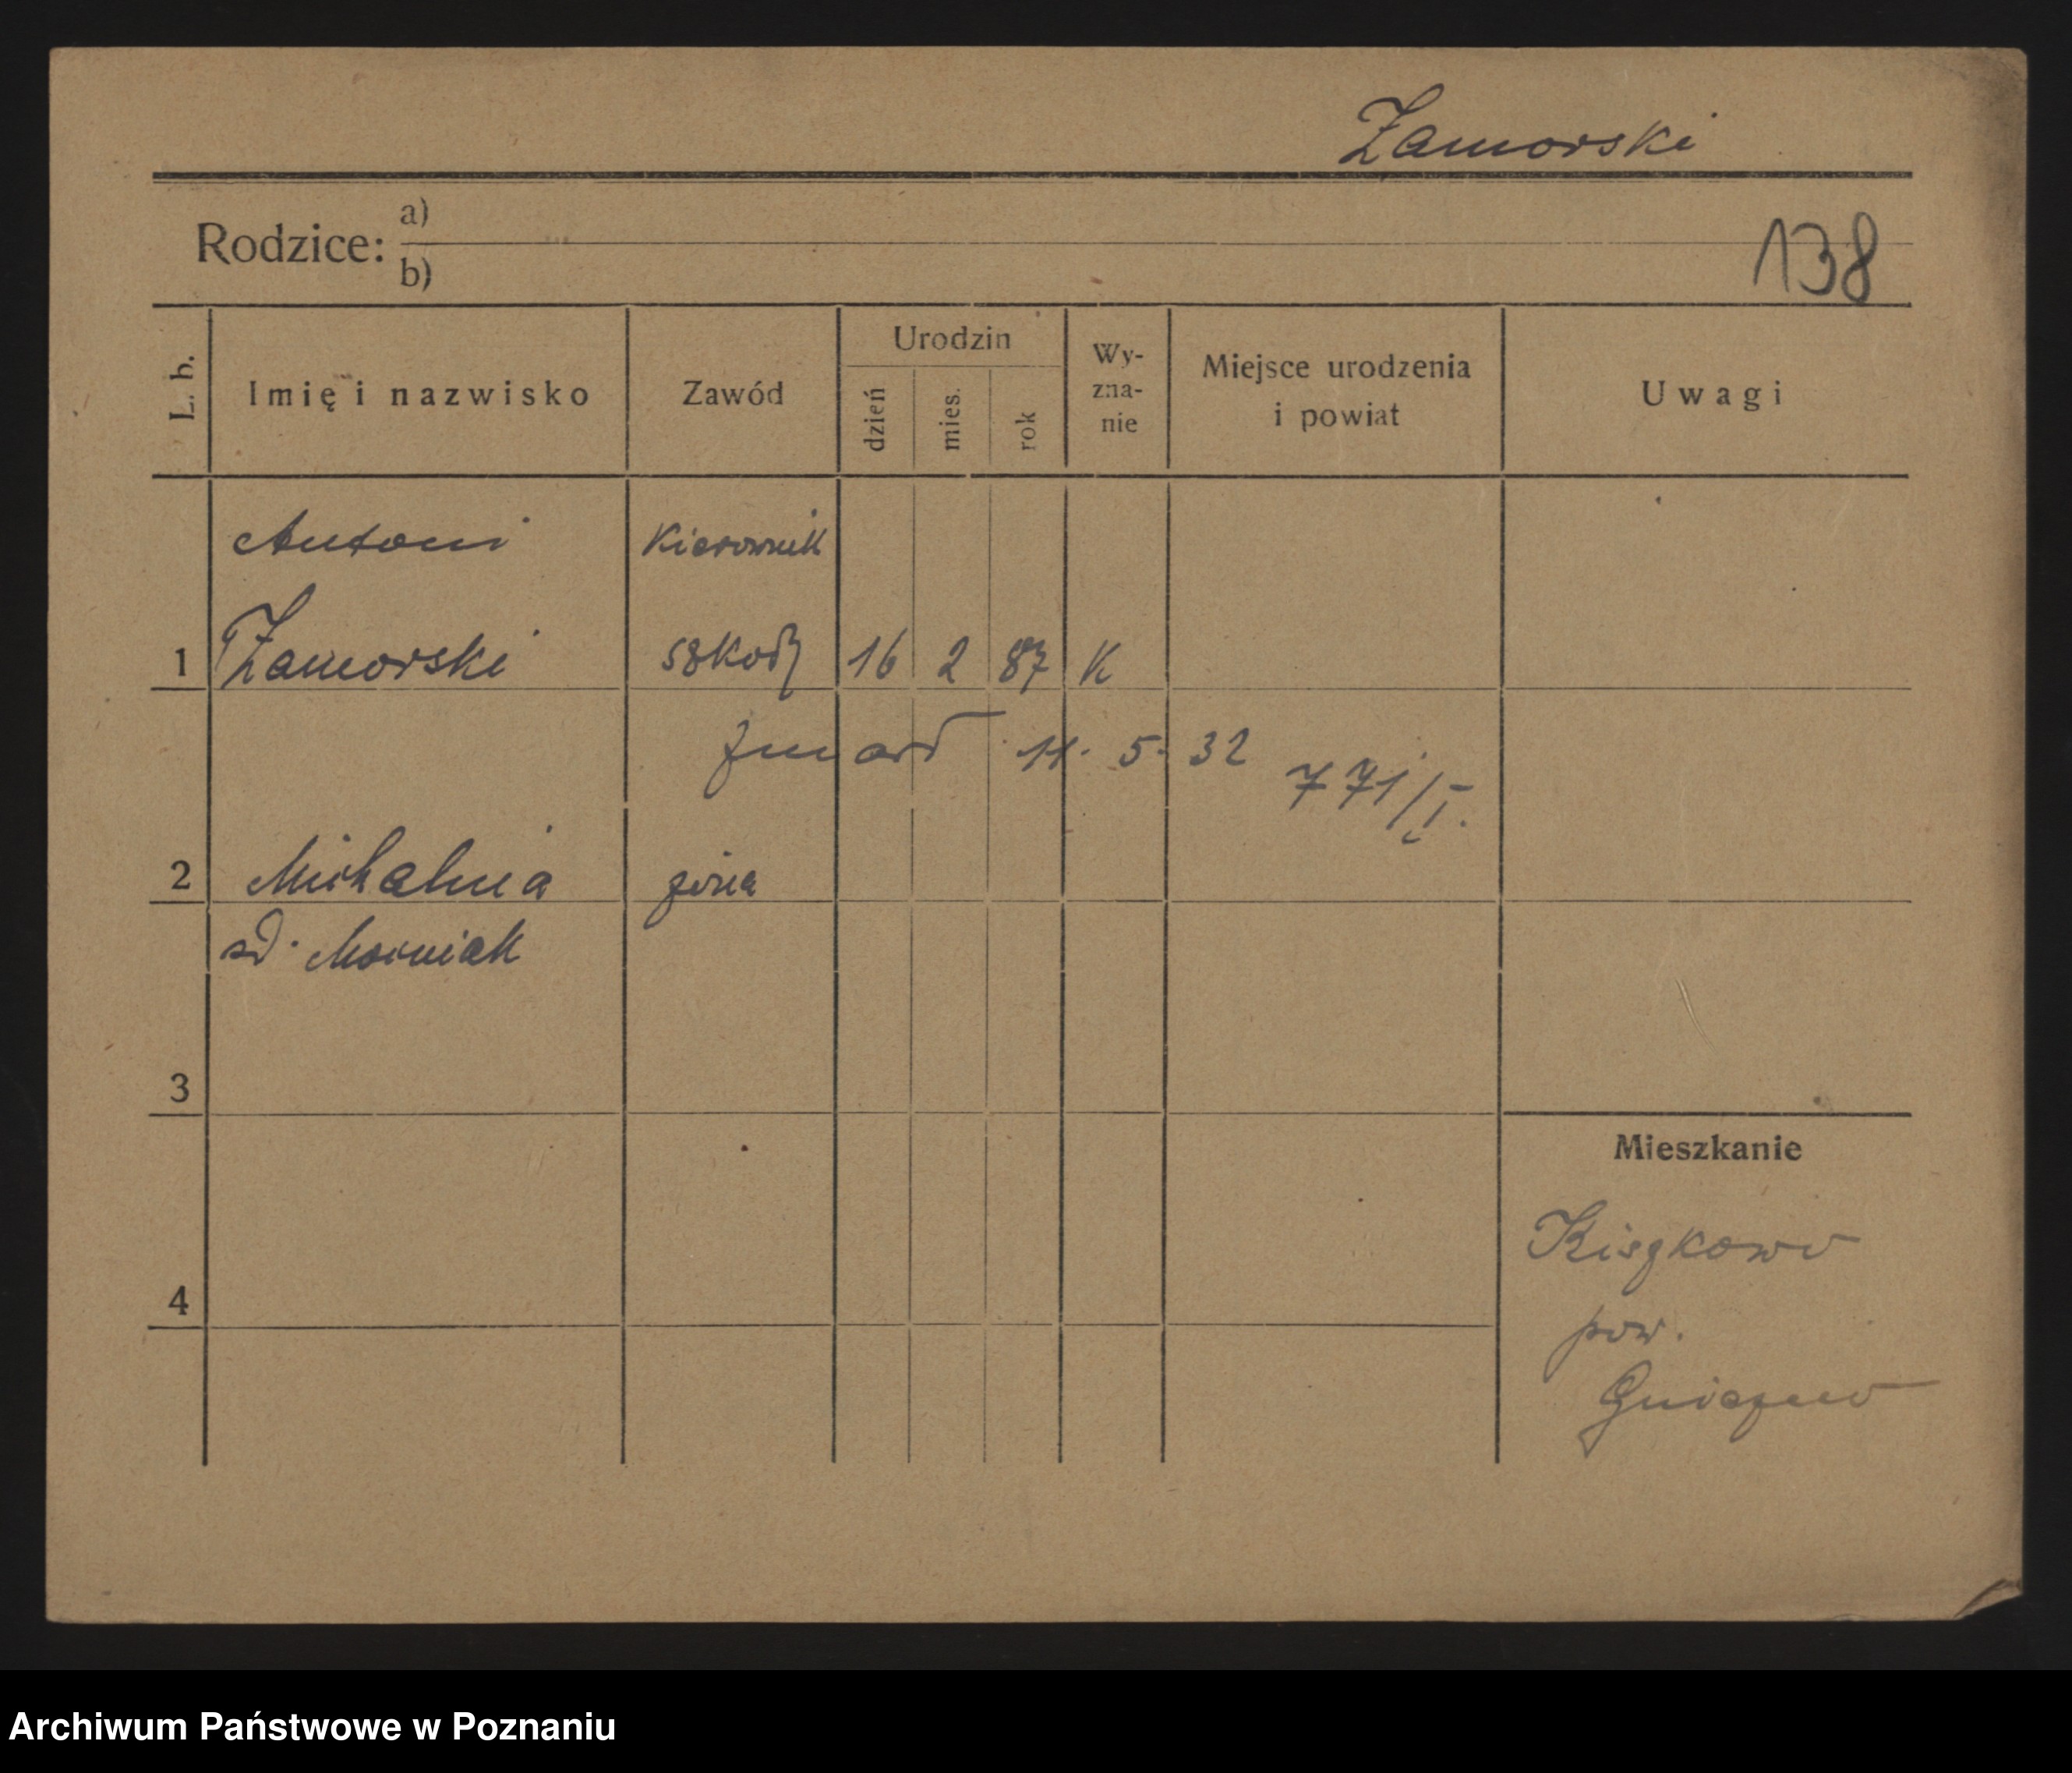 Zamorski
Rodzice: a)
b)
138
L. b.
Imię i nazwisko
Zawód
Urodzin
dzień
mies.
rok
Wy-
zna-
nie
Miejsce urodzenia
i powiat
Uwagi
Antoni
Kierownik
1 Zamorski szkoły 16 2 87 K
zmarł 11. 5. 32
771/I.
2 Michalina żona
zd.
3
4
Mieszkanie
Kiszkowo
pow.
Gniezno
Archiwum Państwowe w Poznaniu